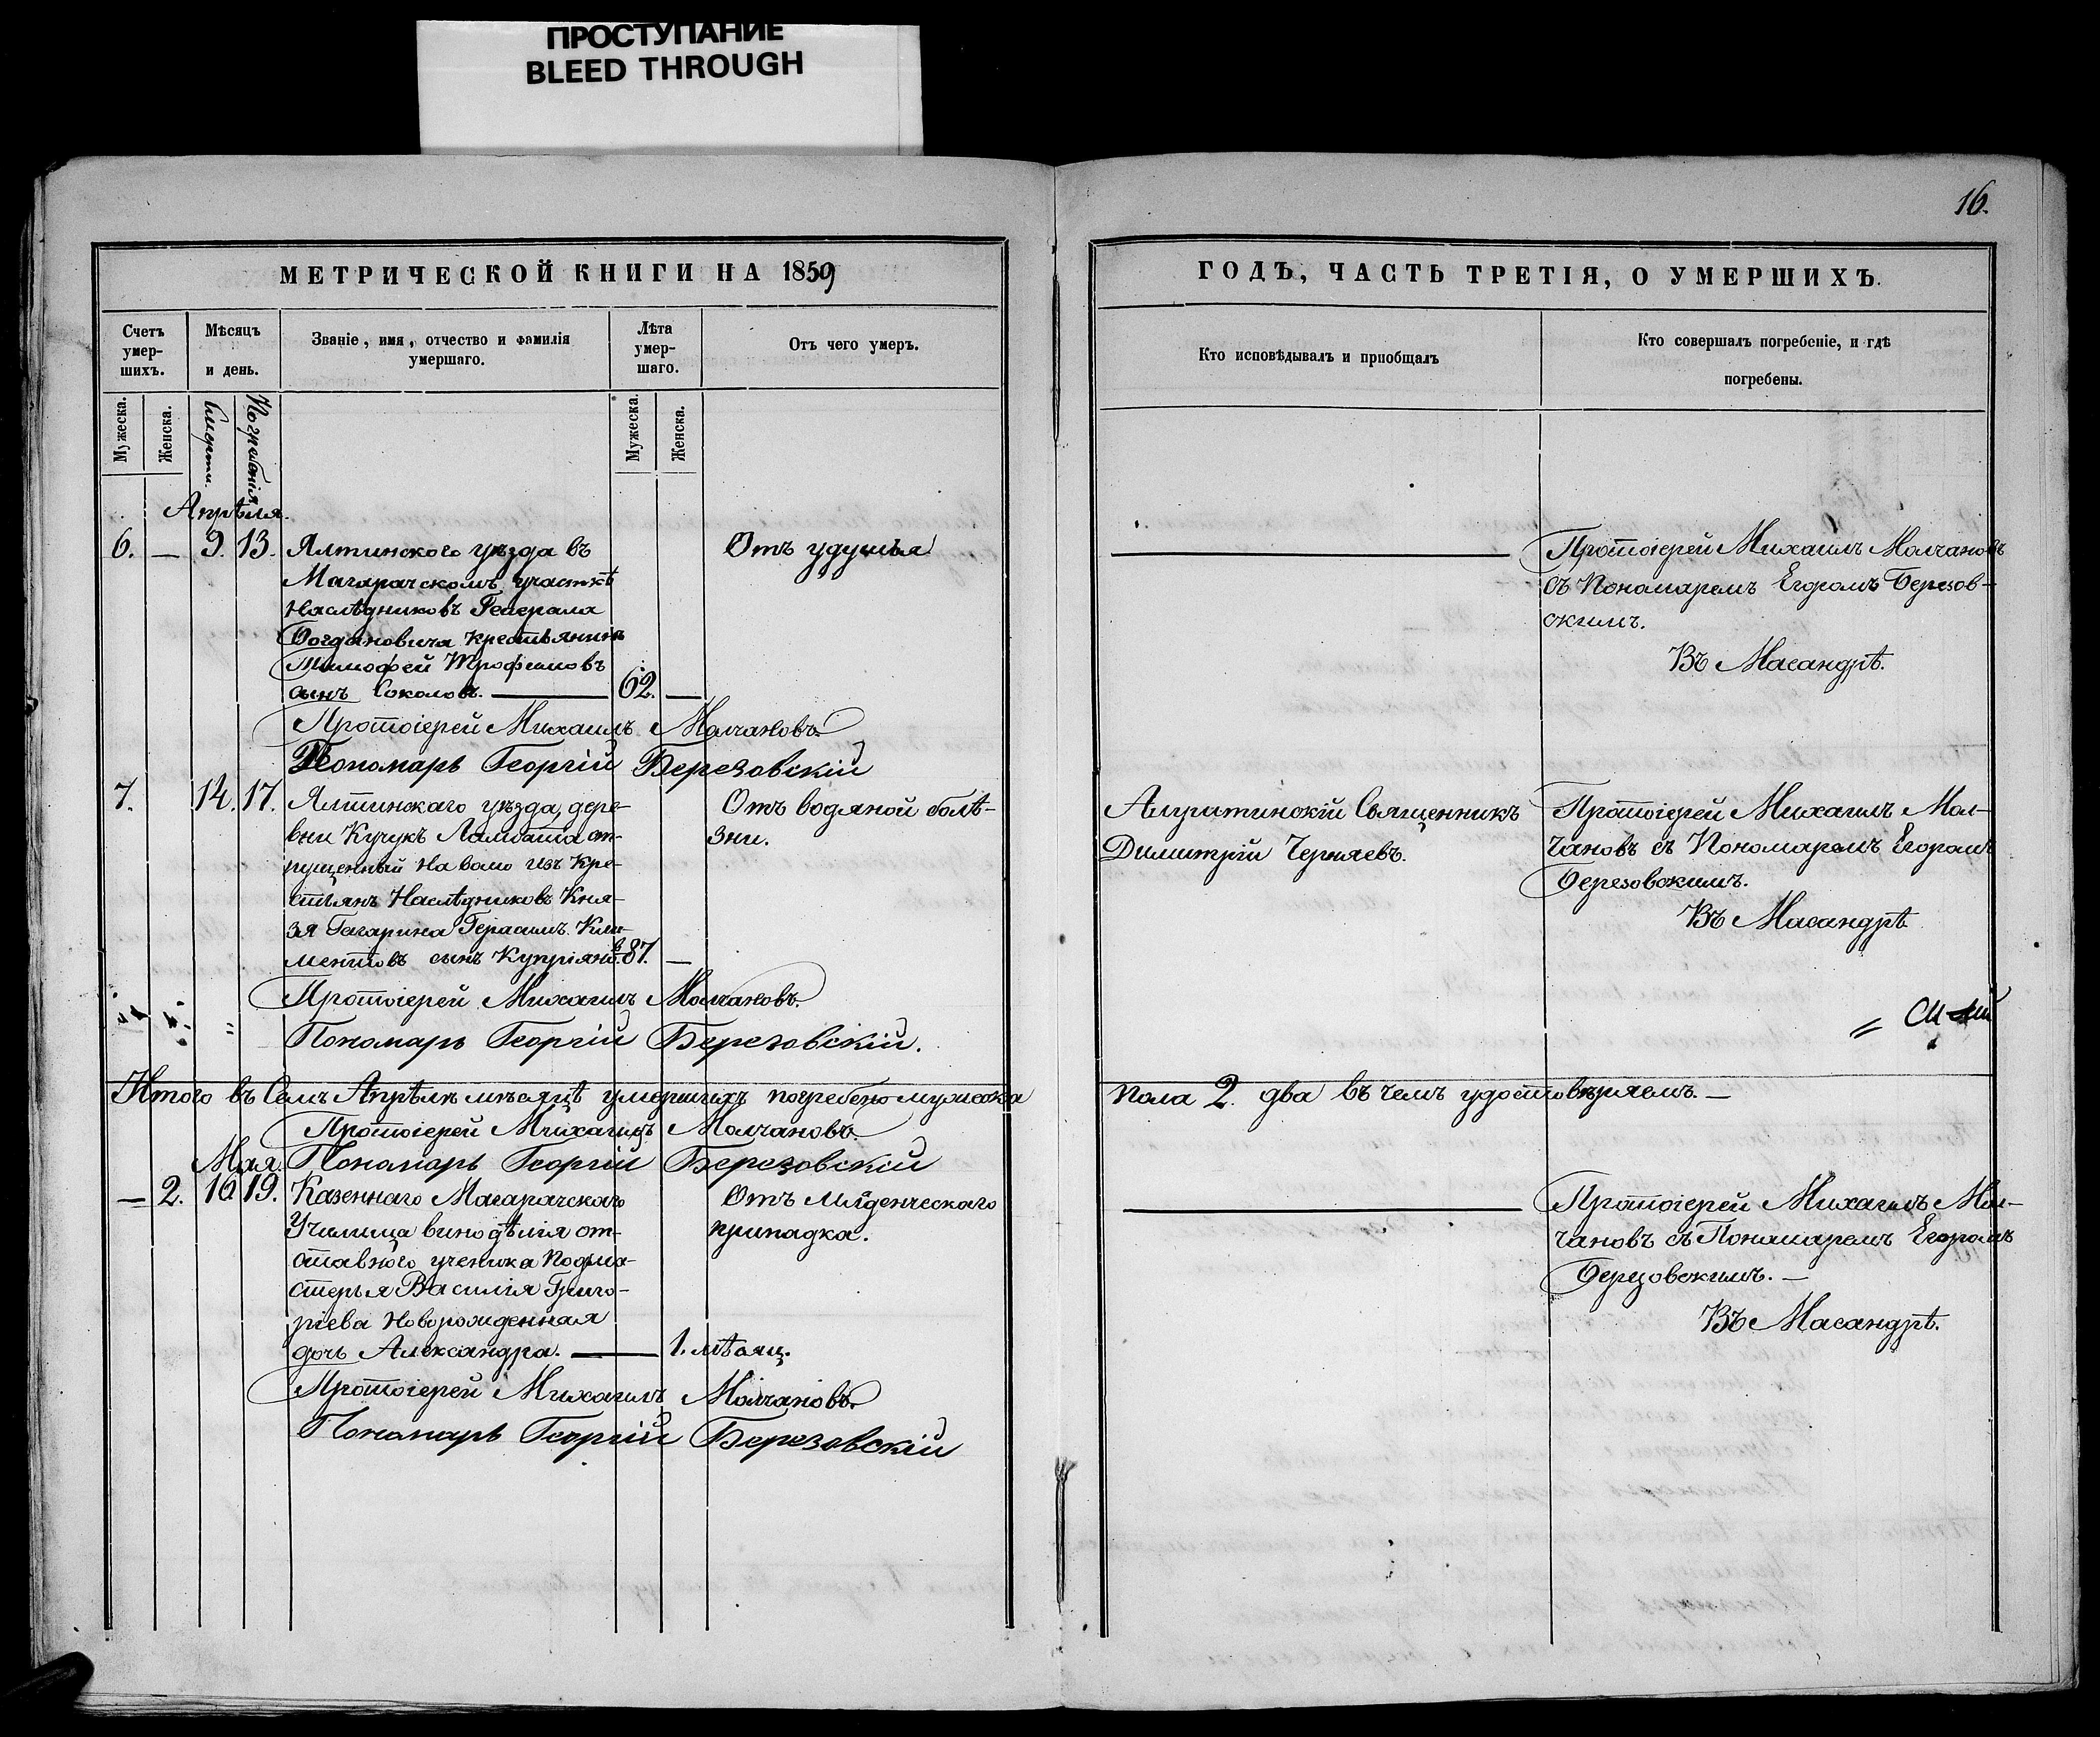 ПРОСТУПАНИЕ
BLEED THROUGH
16.
МЕТРИЧЕСКОЙ КНИГИ НА 1859
Счетъ умер-шихъ.
Мѣсяцъ и день.
Званіе, имя, отчество и фамилія умершаго.
Лѣта умер-шаго.
Отъ чего умеръ.
Мужеска.
Женска.
Смерти.
Погребенія
Мужеска.
Женска.
Апрѣля.
6. — 9. 13. Ялтинского уѣзда въ
Магарачскомъ участкѣ
Наслѣдниковъ Генерала
Богдановича крестьянинъ
Тимофей Трофимовъ
сынъ Соколовъ. — 62. —
Отъ удушья
Протоіерей Михаилъ Молчановъ.
Пономарь Георгій Березовскій
7. 14. 17. Ялтинскаго уѣзда, дере-
вни Кучукъ Ламбата от-
пущенный на волю изъ Кре-
стьянъ Наслѣдниковъ Кня-
зя Гагарина Герасимъ Кли-
ментовъ сынъ Купріяно.въ 87. —
Отъ водяной болѣ-
зни.
Протоіерей Михаилъ Молчановъ.
Пономарь Георгій Березовскій.
Итого въ Семъ Апрѣлѣ мѣсяцѣ умершихъ погребено мужеска
Протоіерей Михаилъ Молчановъ.
Мая. Пономарь Георгій Березовскій
— 2. 16 19. Казеннаго Магарачскаго
Училища винодѣлія от-
ставного ученика Подма-
стерья Василія Григо-
ріева Новорожденная
дочь Александра. — 1. мѣсяц.
Отъ младенческаго
припадка.
Протоіерей Михаилъ Молчановъ.
Пономарь Георгій Березовскій
ГОДЪ, ЧАСТЬ ТРЕТІЯ, О УМЕРШИХЪ.
Кто исповѣдывалъ и пріобщалъ
Кто совершалъ погребеніе, и гдѣ
погребены.
Протоіерей Михаилъ Молчановъ
съ Пономаремъ Егоромъ Березов-
скимъ.
Въ Масандрѣ.
Алуштинскій Священникъ
Димитрій Черняевъ.
Протоіерей Михаилъ Мол-
чановъ съ Пономаремъ Егоромъ
Березовскимъ.
Въ Масандрѣ
пола 2. два въ чемъ удостовѣряемъ. —
Протоіерей Михаилъ Мол-
чановъ съ Пономаремъ Егоромъ
Березовскимъ. —
Въ Масандрѣ.